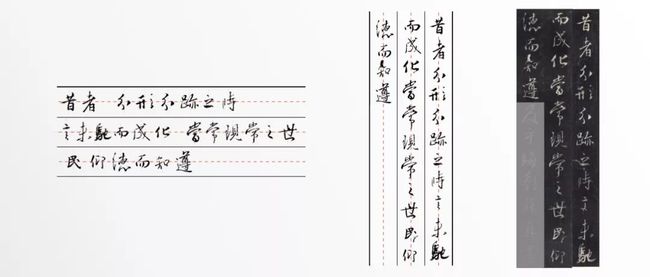 昔者 分形分跡之時
言未馳而成化 當常現常之世
民仰德而知遵
昔者分形分跡之時言未馳
而成化當常現常之世民仰
德而知遵
昔者分形分跡之時言未馳
而成化當常現常之世民仰
德而知遵